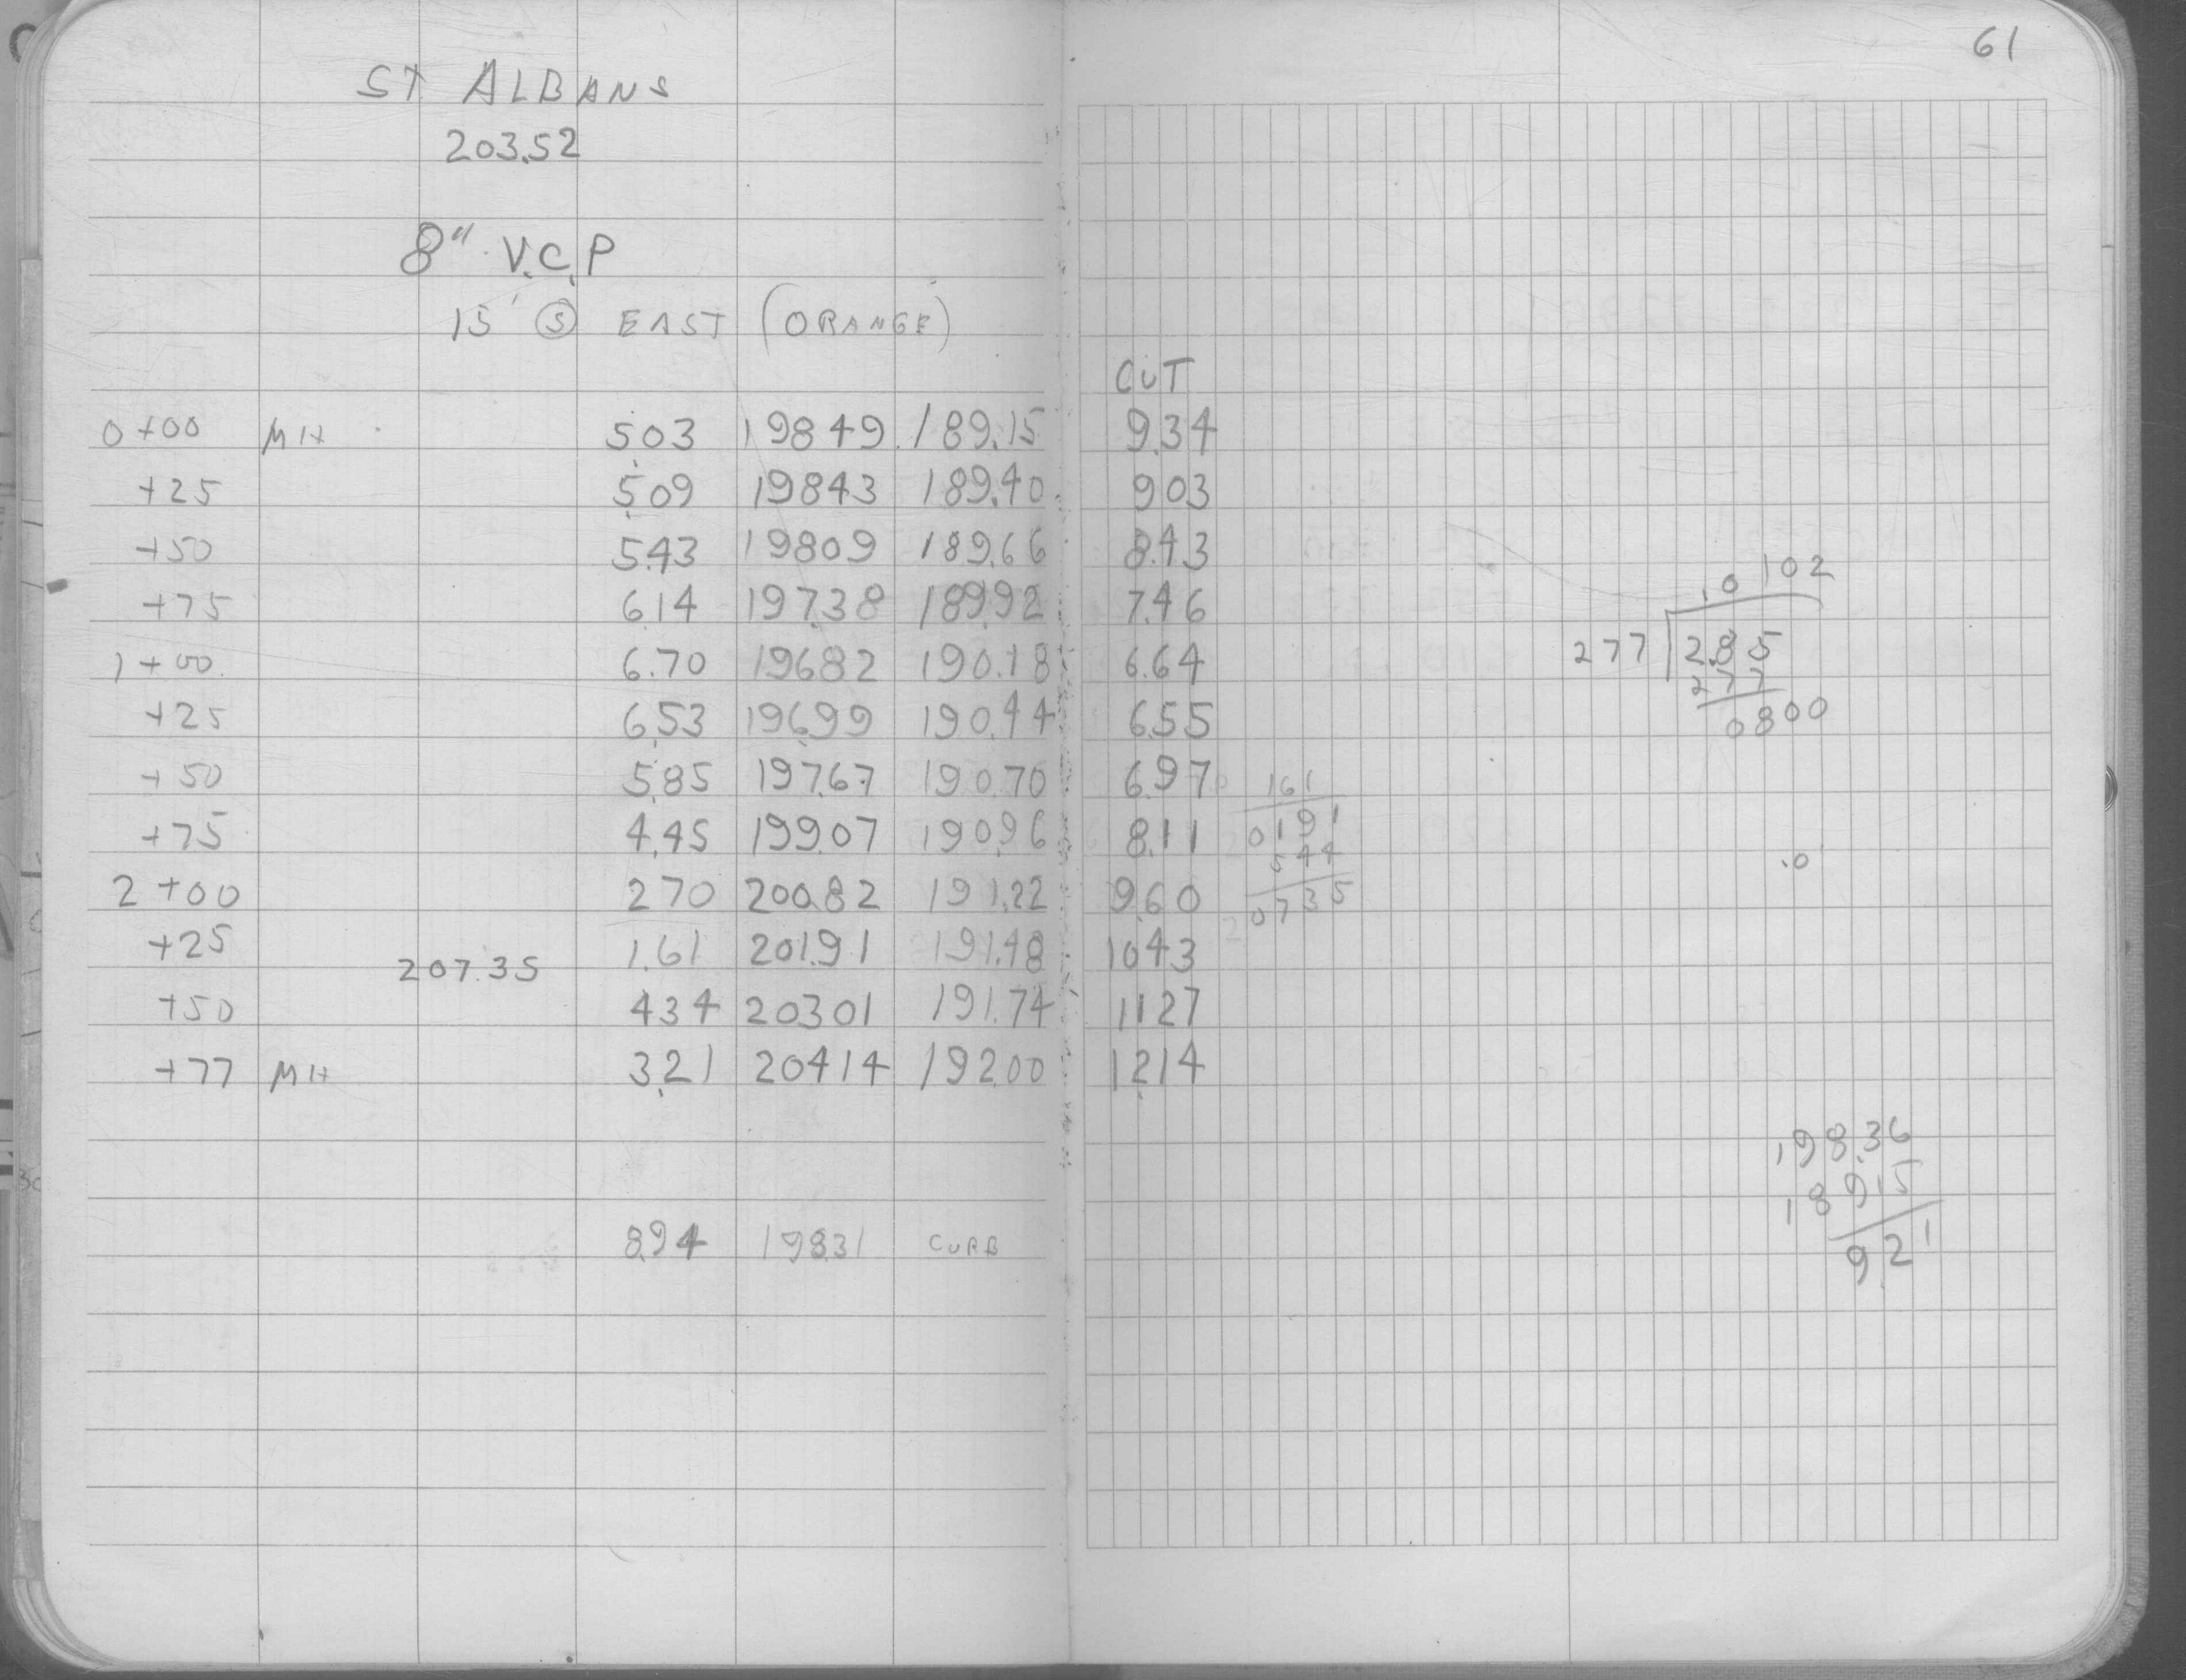 61
ST. ALBANS
203.52
8" V.C.P
15' (S) EAST (ORANGE)
CUT
0+00 MH 5.03 19849 189.15 9.34
+25 5.09 19843 189.40 903
+50 5.43 19809 189.66 8.43
+75 6.14 197.38 189.92 7.46
1+00 6.70 19682 190.18 6.64
+25 6.53 196.99 190.44 6.55
+50 5.85 197.67 190.70 6.97
+75 4.45 199.07 190.96 8.11
2+00 270 200.82 191.22 9.60
+25 1.61 201.91 191.48 1043
207.35
+50 434 20301 191.74 1127
+77 MH 3.21 20414 192.00 12.14
8.94 198.31 CURB
.0102
277 2.85
277
0800
161
0191
544
20735
.0
198.36
189.15
9.21